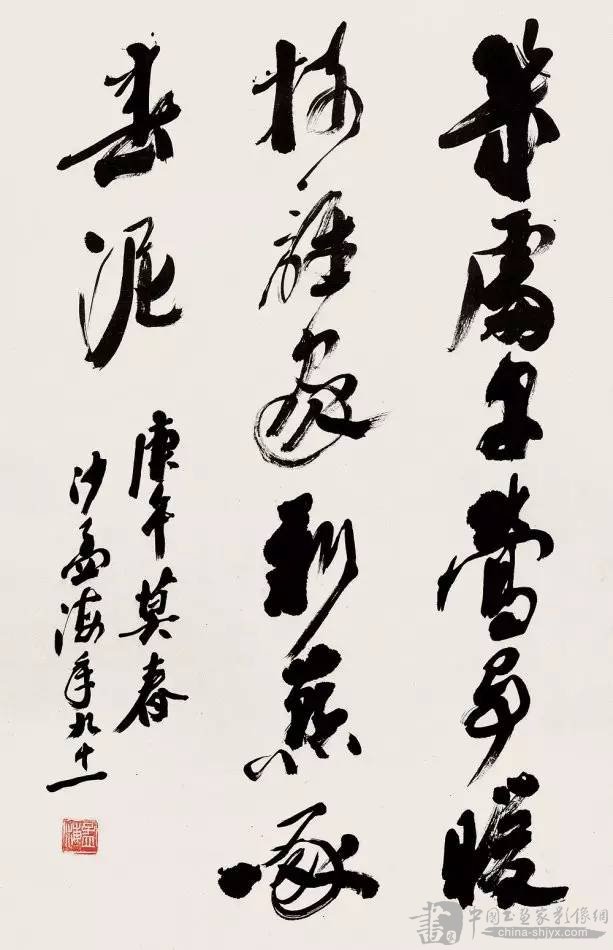 幾處早鶯爭暖
樹誰家新燕啄
春泥
庚午莫春
沙孟海年九十一
孟海
中國书画家影像網
china-shjyx.com